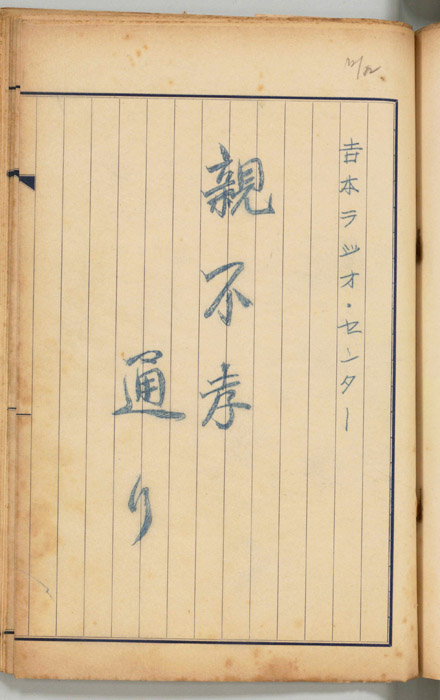 吉本ラジオ・センター
親不孝
通り